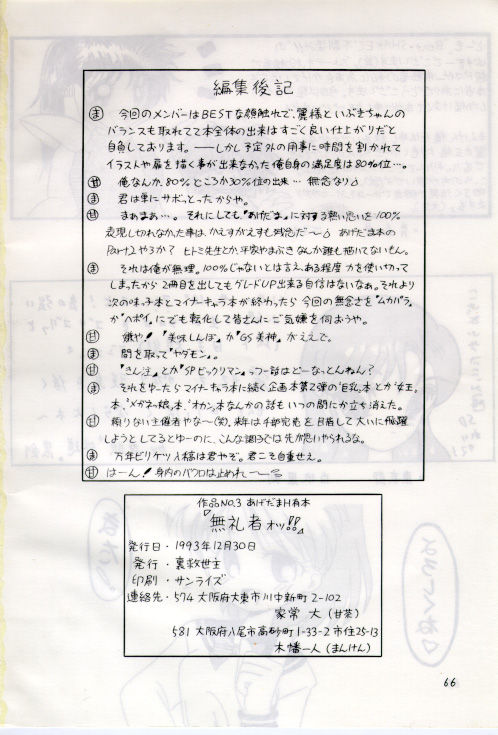 編集後記
㋮ 今回のメンバーはBESTな顔触れで、麗様といぶきちゃんの
バランスも取れてて本全体の出来はすごく良い仕上がりだと
自負しております。――しかし予定外の用事に時間を割かれて
イラストや扉を描く事が出来なかた俺自身の満足度は80%位…。
㋙ 俺なんか、80%どころか30%位の出来… 無念なり
㋮ 君は単にサボッとったからや。
まぁまぁ…。それにしても「あげだま」に対する熱い思いを100%
表現し切れなかった事は、かえすがえすも残念だ〜 あげだま本の
Part2やろか? ヒトミ先生とか、平家やまぶきなんか誰も描いてないもん。
㋮ それは俺が無理。100%じゃないとは言え、ある程度力を使い切って
しまったから2冊目を出してもグレードUP出来る自信はないなぁ。それより
次の味っ子本とマイナーキャラ本が終わったら今回の無念さを「ムカパラ」
か「ヘポイ」にでも転化して皆さんにご気嫌を伺おうや。
嫌や!「美味しんぼ」か「GS美神」がええで。
㋮ 間を取って「ヤダモン」。
「きん注」とか「SPビックリマン」っつー話はどーなっとんねん?
㋮ それをゆーたらマイナーキャラ本に続く企画本第2弾の「巨乳」本とか「女王」
本、「メガネっ娘」本、「オカン」本なんかの話もいつの間にか立ち消えた。
頼りない主催者やな〜(笑)。来年は千部完売と目指して大いに飛躍
しようとしてるとゆーのに、こんな調子では先が思いやられるな。
㋮ 万年ビリケツ入稿は君やぞ。君こそ自重せえ。
はーん! 身内のバクロは止めれ――
作品NO.3 あげだまH有本
「無礼者オッ!!」
発行日・1993年12月30日
発行・裏救世主
印刷・サンライズ
連絡先・574 大阪府大東市川中新町2-102
家常 大 (甘茶)
581 大阪府八尾市高砂町1-33-2市住25-13
木幡一人 (まんけん)
66